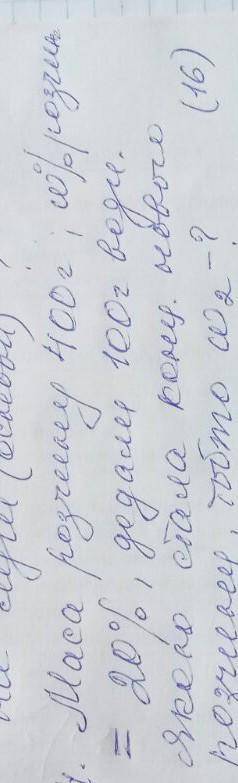 Маса розчину 400г; ω% розчину
= 20%, додали 100г води.
Якою стала конц. нового
розчину, тобто ω₂ -? (16)